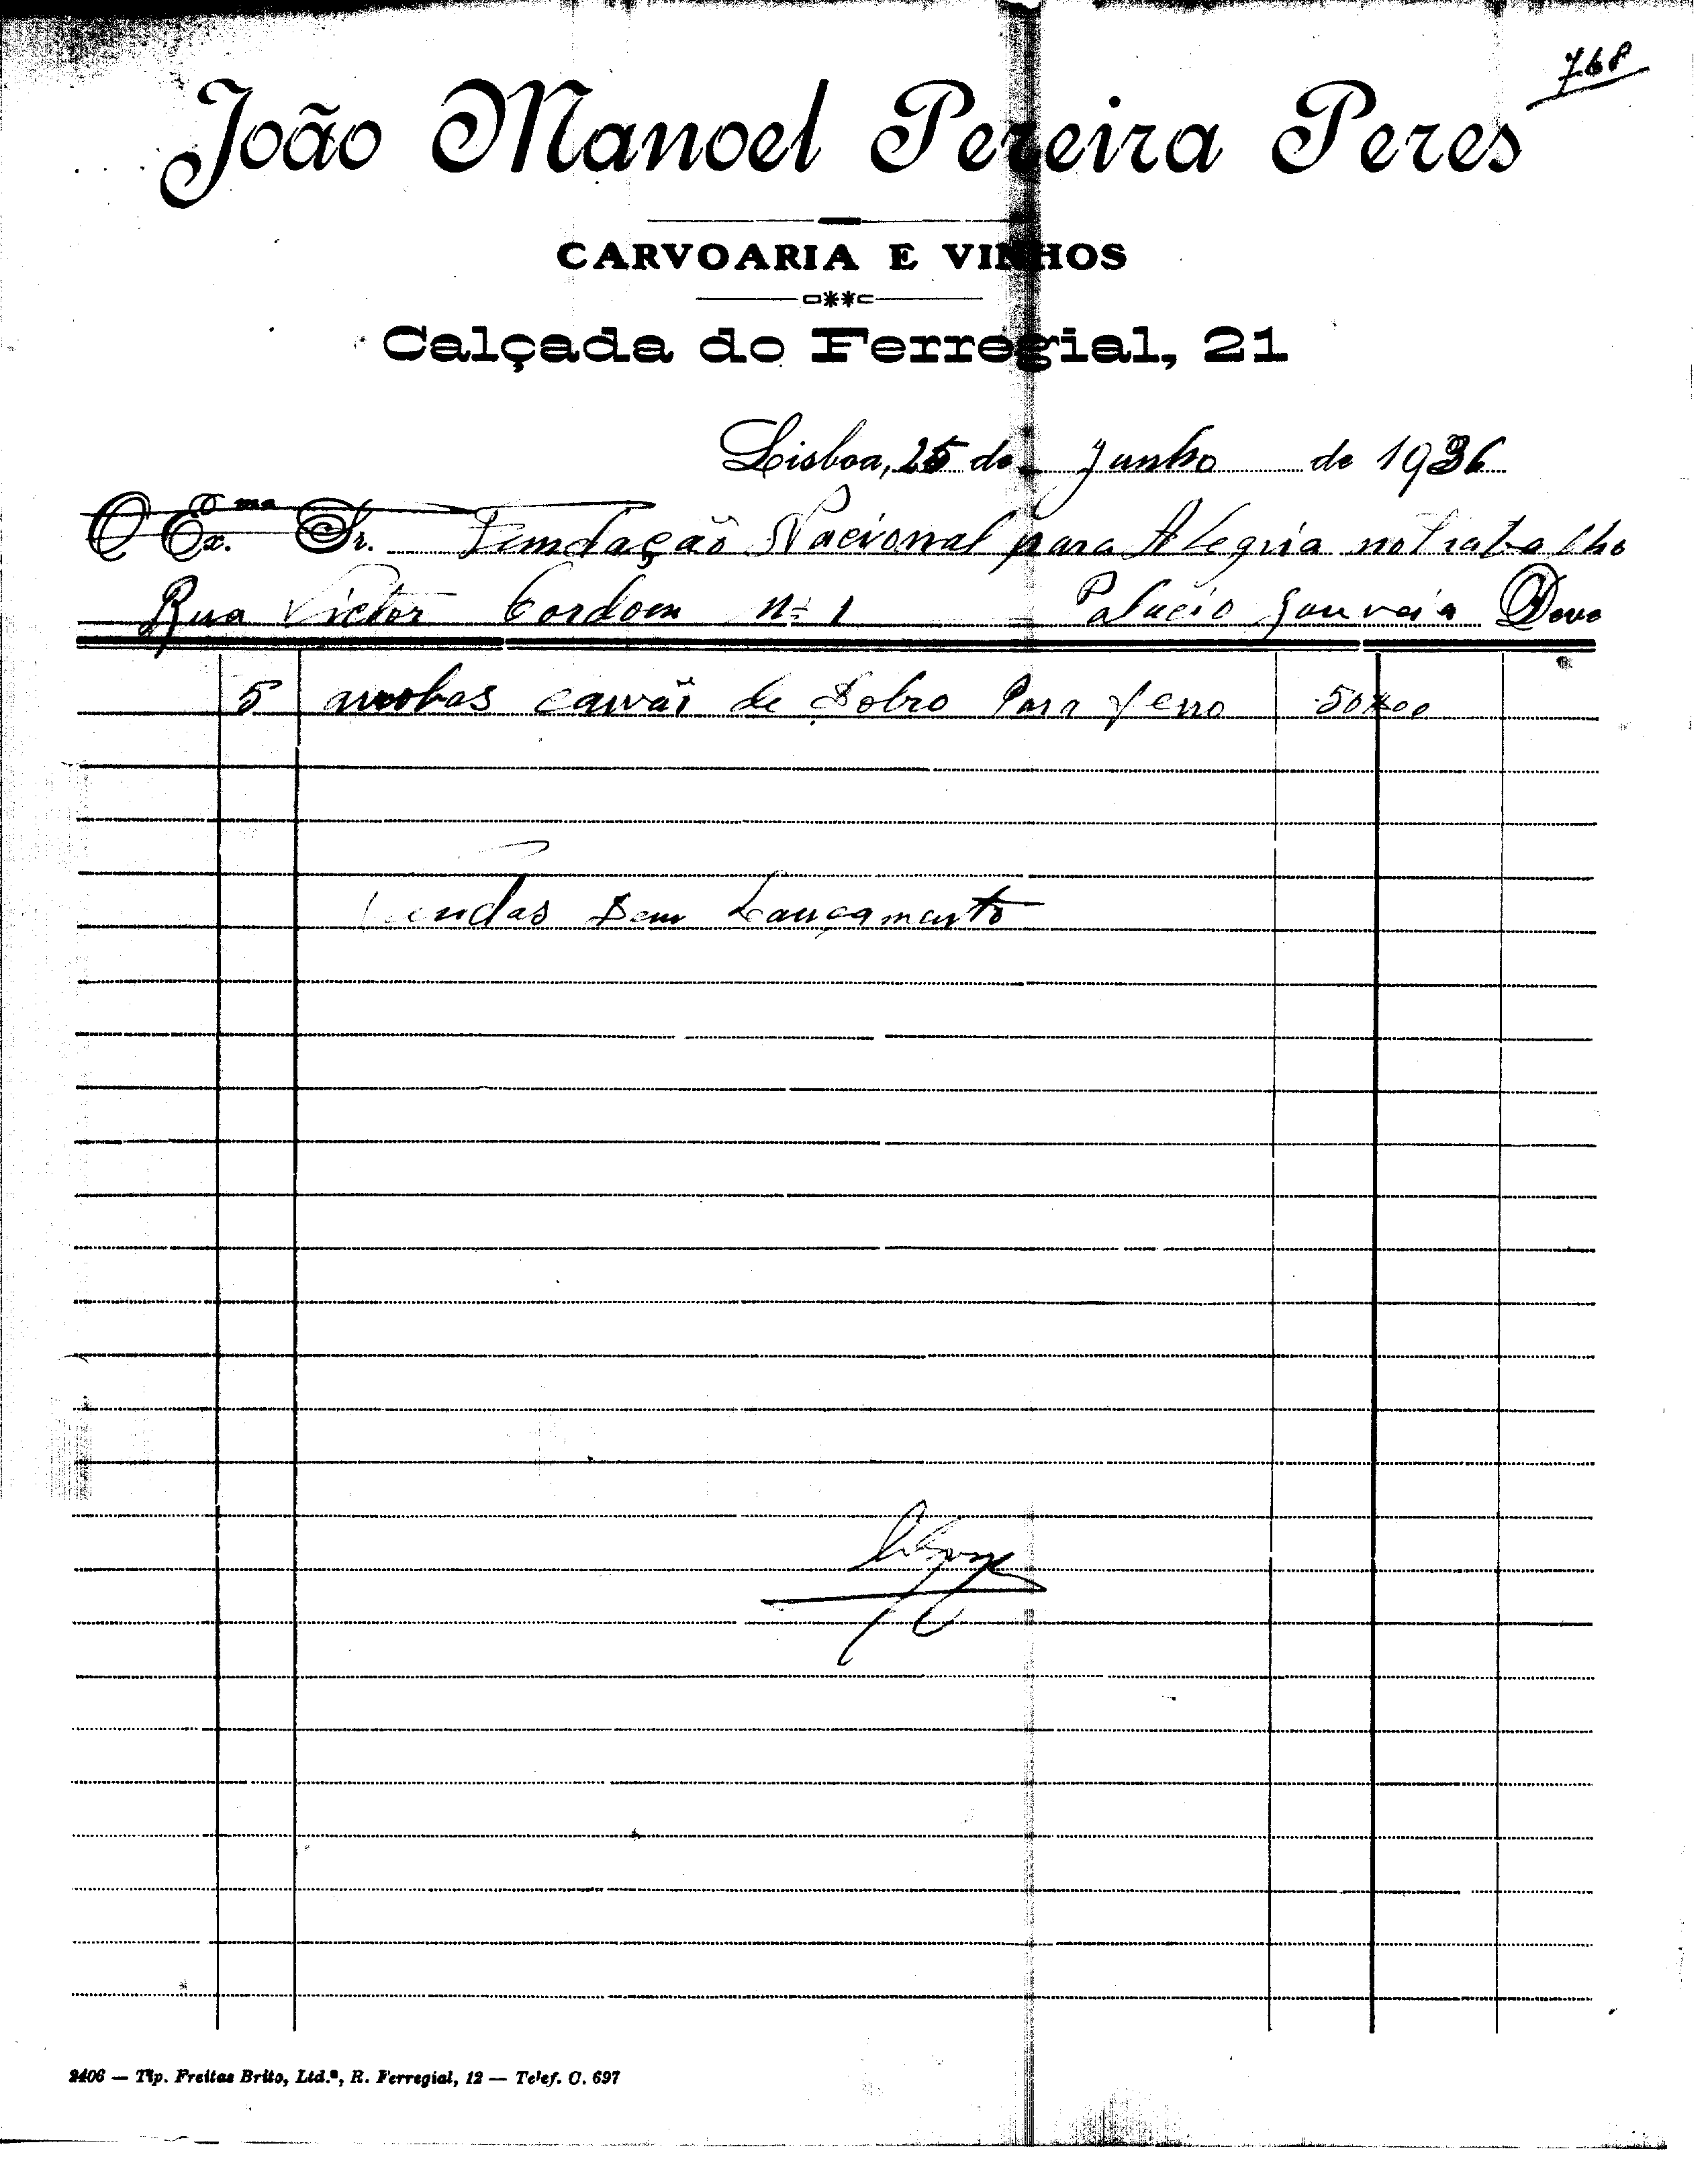 768
João Manoel Pereira Peres
CARVOARIA E VINHOS
Calçada do Ferregial, 21
Lisboa, 25 de Junho de 1936
O Ex.mo Sr. Fundação Nacional para Alegria no Trabalho
Rua Victor Cordon n.º 1 Palacio Gouveia Deve
5 arrobas carvão de Sobro Para ferro 50$00
Vendas Sem Lançamento
2406 — Tip. Freitas Brito, Ltd.ª, R. Ferregial, 12 — Telef. C. 697